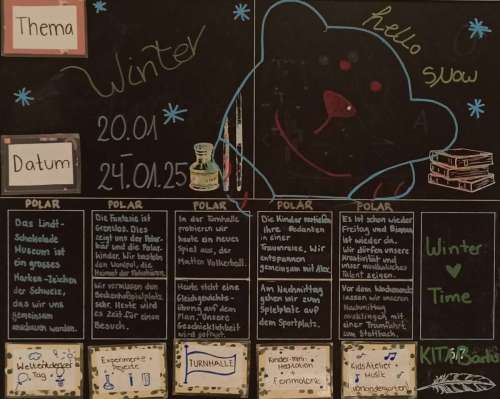 Thema
Winter
hello
snow
20.01
–
24.01.25
Datum
POLAR
POLAR
POLAR
POLAR
POLAR
Das Lindt-
Schokolade
Museum ist
ein grosses
Marken-Zeichen
der Schweiz,
das wir uns
gemeinsam
anschauen werden.
Die Fantasie ist
Grenzlos. Dies
zeigt uns der Polar-
bär und die Polar-
kinder. Wir basteln
den Nordpol, die
Heimat der
Wir vermissen den
sehr. Heute wird
es Zeit für einen
Besuch.
In der Turnhalle
probieren wir
heute ein neues
Spiel aus, der
Matten Völkerball.
Heute steht eine
Gleichgewichts-
übung auf dem
Plan. Unsere
Geschicklichkeit
wird
Die Kinder
ihre Gedanken
in einer
Traumreise. Wir
entspannen
gemeinsam mit Alex.
Am Nachmittag
gehen wir zum
Spielplatz auf
dem Sportplatz.
Es ist schon wieder
Freitag und
ist wieder da.
Wir dürfen unsere
Kreativität und
unser musikalisches
Talent zeigen.
Vor dem Wochenende
lassen wir unseren
Nachmittag
mit
einer Traumfahrt
Winter
Time
KITA
Weltentdecker
Tag
Experimente
Projekte
TURNHALLE
Kinder
Meditation
+
Feinmotorik
KidsAtelier +
Musik